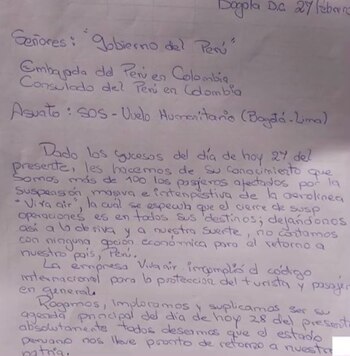 Bogotá D.C. 27 febrero
Señores: "Gobierno del Perú"
Embajada del Perú en Colombia
Consulado del Perú en Colombia
Asunto: SOS - Vuelo Humanitario (Bogotá-Lima)
Dado los sucesos del día de hoy 27 del
presente, les hacemos de su conocimiento que
somos más de 100 los pasajeros afectados por la
suspensión masiva e intempestiva de la aerolinea
"Viva air", la cual se especula que el cierre de susp
operaciones es en todos sus destinos; dejándonos
así a la deriva y a nuestra suerte, no contamos
con ninguna opción económica para el retorno a
nuestro país, Perú.
La empresa Viva air. incumplió el código
internacional para la protección del turista y pasajer
en general.
Rogamos, imploramos y suplicamos ser su
agenda principal del día de hoy 28 del present
absolutamente todos deseamos que el estado
peruano nos lleve pronto de retorno a nuestra
patria.